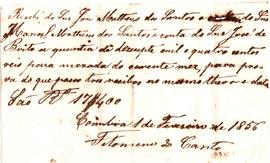 Recebi do Snr José Matheus dos Santos e do Snr
Manoel Matheus dos Santos e conta do Snr José de
Brito a quantia de dezasete mil e quatro centos
reis para mezada do corrente mez, para pro
va do que passo dois recibos no mesmo theor e data
São Rs 17$400
Coimbra 1 de Fevereiro de 1856
do Canto